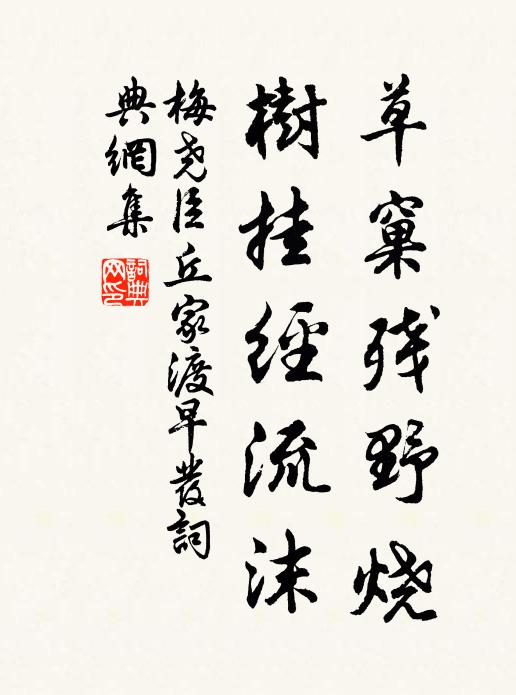 草窠残野烧
樹挂經流沫
梅尧臣丘家渡早發詞
典網集
詞典网印